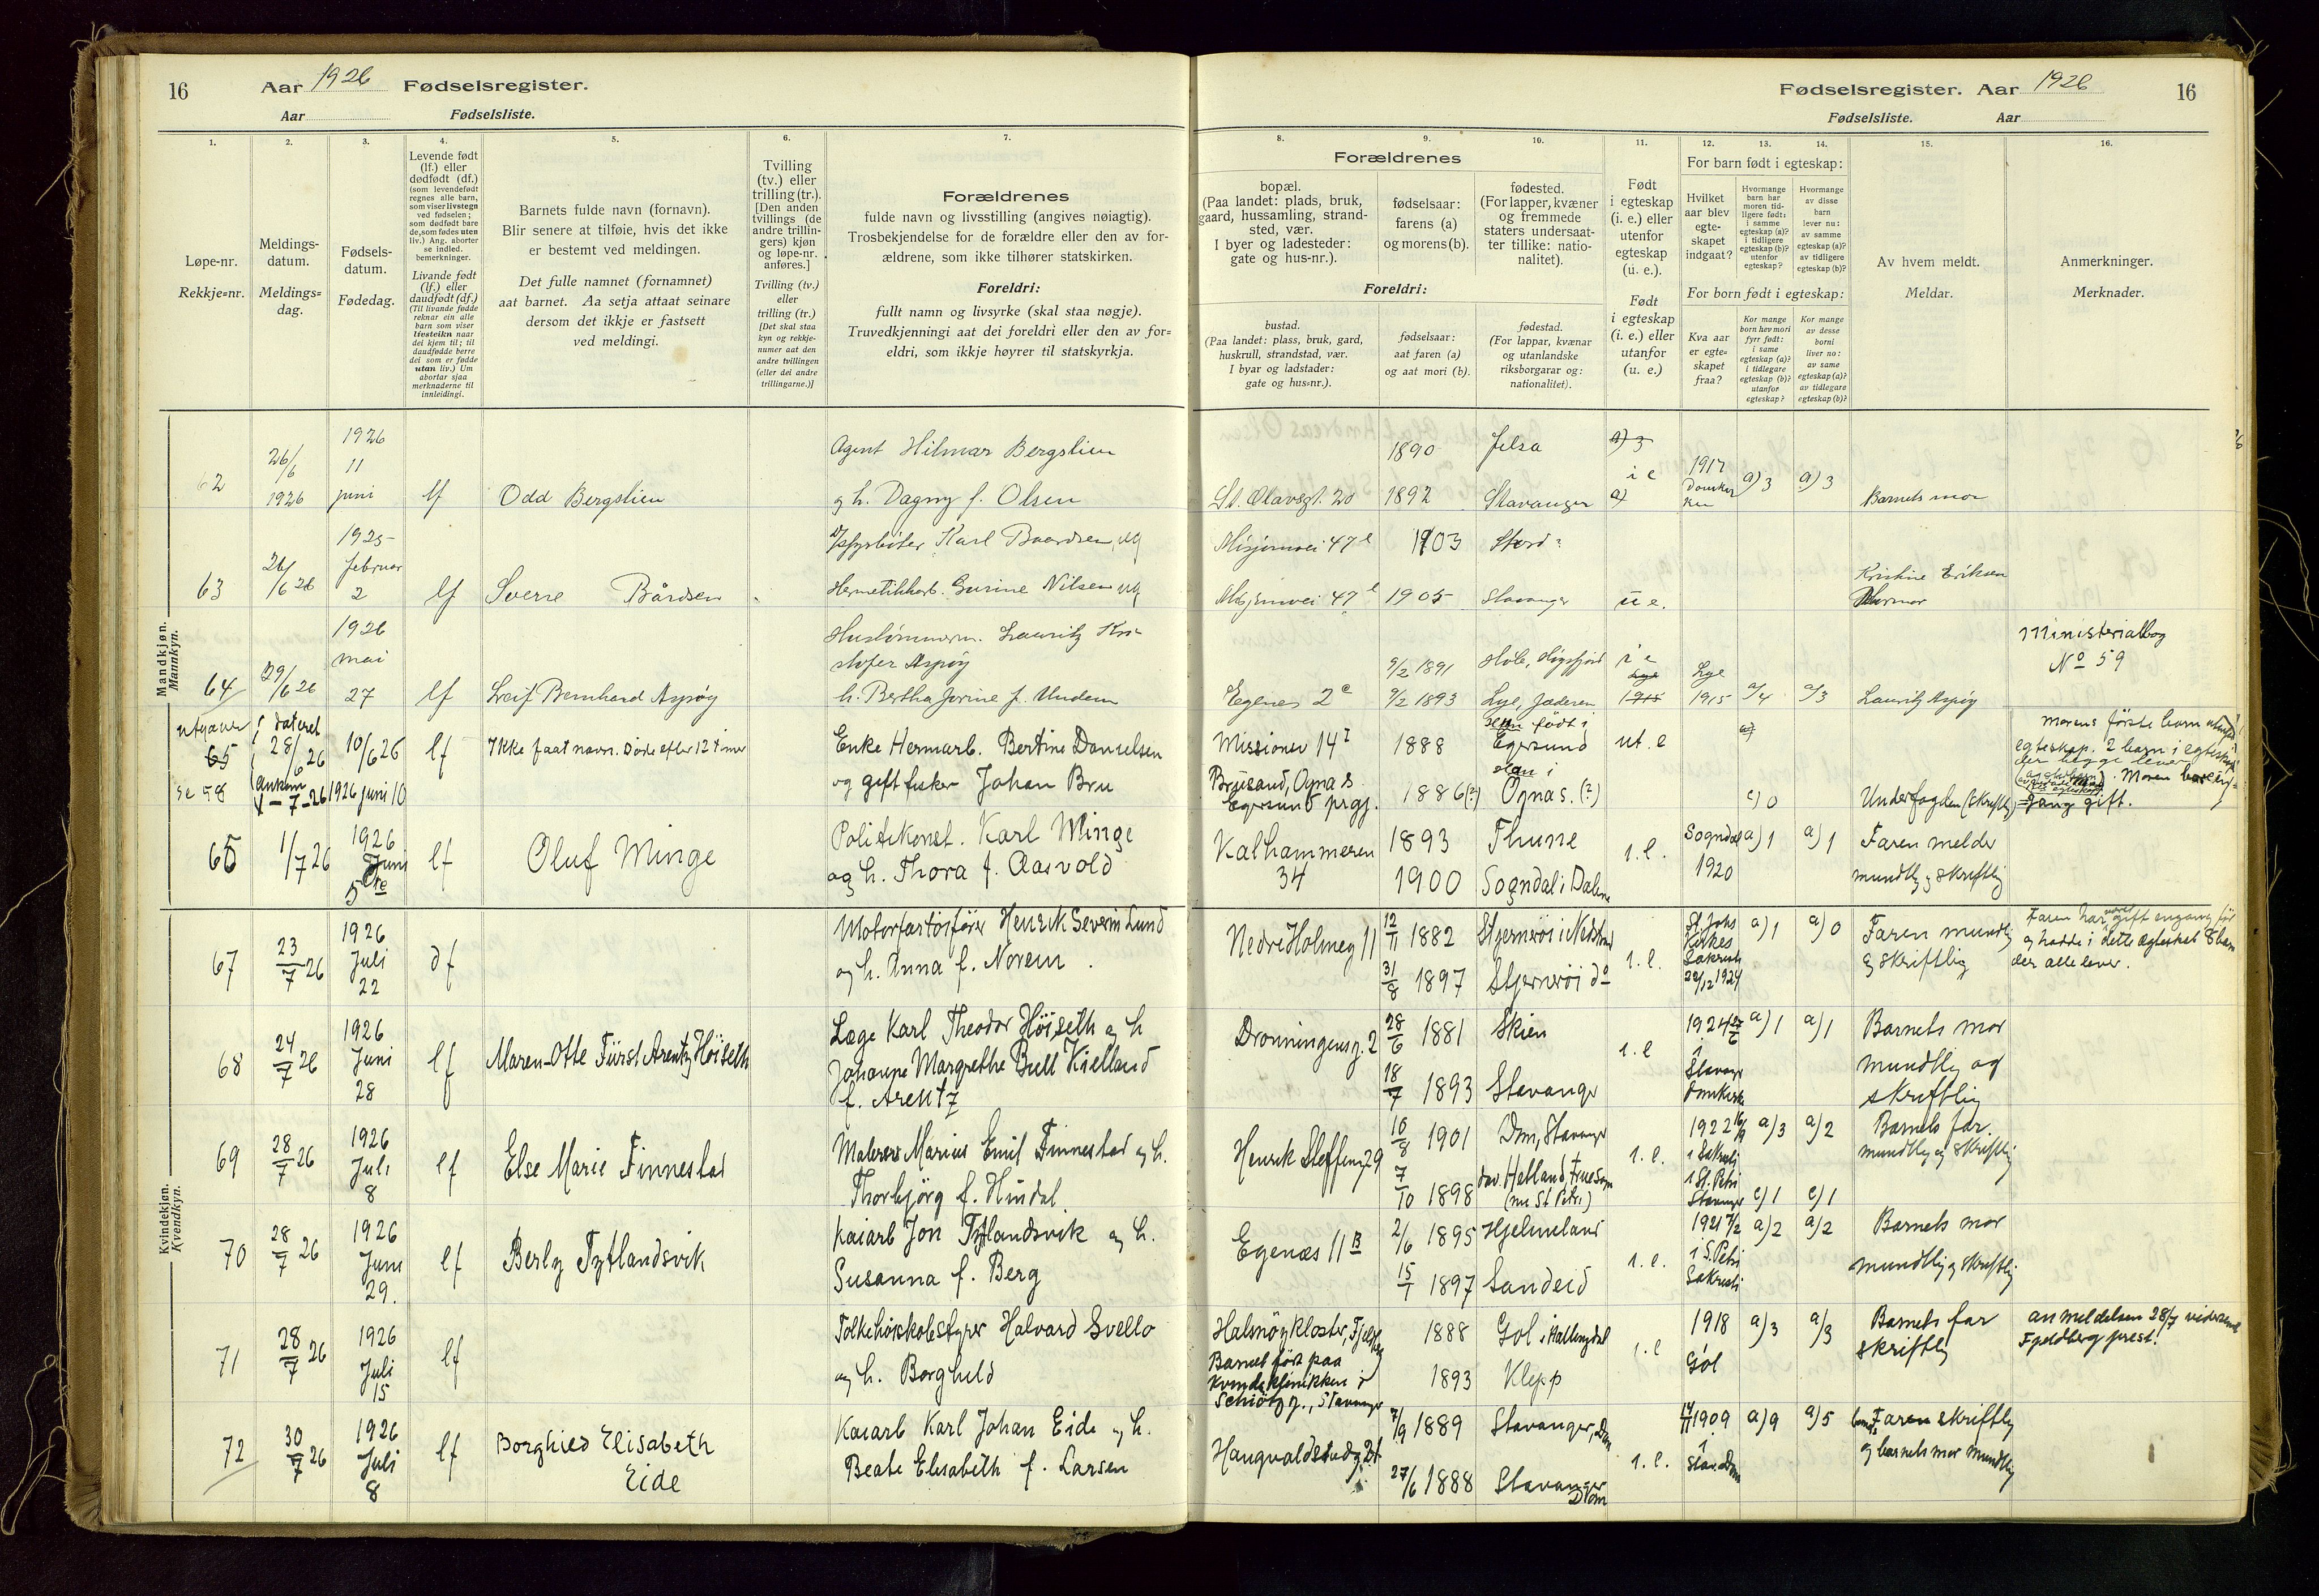 16
Aar 1926 Fødselsregister.
Aar Fødselsliste.
1.
Løpe-nr.
Rekkje=nr.
2.
Meldings-
datum.
Meldings=
dag.
3.
Fødsels-
datum.
Fødedag.
4.
Levende født
(lf.) eller
dødfødt (df.)
(som levendefødt
regnes alle barn,
som viser livstegn
ved fødselen;
som dødfødt bare
de, som fødes uten
liv.) Ang. aborter
se indled.
bemerkninger.
Livande født
(lf.) eller
daudfødt (df.)
(Til livande fødde
reknar ein alle
barn som viser
livsteikn naar
dei kjem til; til
daudfødde berre
dei som er fødde
utan liv.) Um
abortar sjaa
merknaderne til
innleidingi.
5.
Barnets fulde navn (fornavn).
Blir senere at tilføie, hvis det ikke
er bestemt ved meldingen.
Det fulle namnet (fornamnet)
aat barnet. Aa setja attaat seinare
dersom det ikkje er fastsett
ved meldingi.
6.
Tvilling
(tv.) eller
trilling (tr.).
[Den anden
tvillings (de
andre trillin-
gers) kjøn
og løpe-nr.
anføres.]
Tvilling (tv.)
eller
trilling (tr.)
[Det skal staa
kyn og rekkje-
numer aat den
andre tvillingen
(eller dei andre
trillingarne.)]
7.
Forældrenes
fulde navn og livsstilling (angives nøiagtig).
Trosbekjendelse for de forældre eller den av for-
ældrene, som ikke tilhører statskirken.
Foreldri:
fullt namn og livsyrke (skal staa nøgje).
Truvedkjenningi aat dei foreldri eller den av for=
eldri, som ikkje høyrer til statskyrkja.
Fødselsregister. Aar 1926
16
Fødselsliste. Aar
8.
Forældrenes
bopæl.
(Paa landet: plads, bruk,
gaard, hussamling, strand-
sted, vær.
I byer og ladesteder:
gate og hus-nr.).
Foreldri:
bustad.
(Paa landet: plass, bruk, gard,
huskrull, strandstad, vær.
I byar og ladstader:
gate og hus=nr.).
9.
fødselsaar:
farens (a)
og morens (b).
fødselsaar:
aat faren (a)
og aat mori (b).
10.
fødested.
(For lapper, kvæner
og fremmede
staters undersaat-
ter tillike: natio-
nalitet).
fødestad.
(For lappar, kvænar
og utanlandske
riksborgarar og:
nationalitet).
11.
Født
i egteskap
(i. e.) eller
utenfor
egteskap
(u. e.).
Født
i egteskap
(i. e.) eller
utanfor
(u. e.)
For barn født i egteskap:
12.
Hvilket
aar blev
egte-
skapet
indgaat?
13.
Hvormange
barn har
moren tid-
ligere født:
i samme
egteskap (a)?
i tidligere
egteskap (b)?
utenfor
egteskap?
14.
Hvormange
av disse
barn
lever nu:
av samme
egteskap (a)?
av tidligere
egteskap (b)?
For born født i egteskap:
Kva aar
er egte=
skapet
fraa?
Kor mange
born hev mori
fyrr født:
i same
egteskap (a)?
i tidlegare
egteskap (b)?
utanfor
egteskap?
Kor mange
av desse
borni
liver no:
av same
egteskap (a)?
av tidlegare
egteskap (b)?
15.
Av hvem meldt.
Meldar.
16.
Anmerkninger.
Merknader.
Mandkjøn.
Mannkyn.
62 26/6 1926 1926 11 juni lf Odd Bergslien
Agent Hilmar Bergslien
og h. Dagny f. Olsen
St. Olavsgt. 20 1890 Jelsa
1892 Stavanger i e 1917 a) 3 a) 3 Barnets mor
63 26/6 26 1925 februar 2 lf Sverre Bårdsen
Karl Baardsen, ug
Hermetikkarb. Gurine Nilsen ug
Misjonsvei 47 e 1903 Stord?
Misjonsvei 47 e 1905 Stavanger u e. Kristine Eriksen
64 29/6 26 1926 mai 27 lf Leif Bernhard Aspøy
Lauritz Kri-
stofer Aspøy
h. Bertha Jorine f. Undem
Egenes 2 e 9/2 1891 Hole, Høgsfjord i e
9/2 1893 Lye, Jæderen Lye 1915 a/4 a/3 Lauritz Aspøy
Ministerialbog
No 59
utgaaer 65 se 58
dateret 28/6 26 ankom 1-7-26
10/6 26 1926 juni 10 lf Ikke faat navn. Døde efter 12 timer
Enke Hermarb. Bertine Danielsen
og gift fisker Johan Bru
Missionsv 14 I 1888 født i Egersund ut. e
Brusand, Ognas
Egersund prgj. 1886 (?) Han i Ognas. (?) c) 0
morens første barn utenfor
egteskap. 2 barn i egteskap
der begge lever
Moren har en-
gang gift.
66 1/7 26 1926 Juni 5te lf Oluf Minge
Politikonst. Karl Minge
og h. Thora f. Aasvold
Kalhammeren 34 1893 Thune
1900 Sogndal i Dalene i. e. Sogndal 1920 a) 1 a) 1 Faren melder
mundtlig og skriftlig
Kvindekjøn.
Kvendkyn.
67 23/7 26 1926 Juli 22 df
Motorfartøifører Henrik Severin Lund
og h. Anna f. Norem
Nedre Holmeg 11 12/11 1882 Stjernerøi i Nedstrand
31/8 1897 Stjernerøi do i. e. St. Johs Kirkes Sakristi 22/12 1924 a) 1 a) 0 Faren mundtlig
og skriftlig
Faren har været gift engang før
og hadde i dette egteskab 8 barn
der alle lever.
68 24/7 26 1926 Juni 28 lf Maren-Otte Fürst Arentz Høiseth
Læge Karl Theodor Høiseth og h
Johanne Margrethe Bull Kielland
f. Arentz
Dronningensg. 2 28/6 1881 Skien
18/7 1893 Stavanger i. e 1924 27/6 i Stavanger Domkirke a) 1 a) 1 Barnets mor
mundtlig og
skriftlig
69 28/7 26 1926 Juli 8 lf Else Marie Finnestad
Malersv Marius Emil Finnestad og h.
Thorbjørg f. Hindal
Henrik Steffensg 29 10/8 1901 Dom, Stavanger
7/10 1898 Hetland, Fruesogn
(nu St Petri) i. e. 1922 16/9 i Sakristi i St. Petri Stavanger a) 3 a) 2 c) 1 c) 1 Barnets far.
mundtlig og skriftlig
70 28/7 26 1926 Juni 29. lf Berly Tytlandsvik
Kaiarb Jon Tytlandsvik og h.
Susanna f. Berg
Egenæs 11 B 2/6 1895 Hjelmeland
15/1 1897 Sandeid i. e. 1921 7/2 i S. Petri Sakristi a) 2 a) 2 Barnets mor
mundtlig og skriftlig
71 28/7 26 1926 Juli 15 lf
Folkehøiskolestyrer Halvard Svello
og h. Borghild
Halsnøykloster, Fjelberg
Barnet født paa
Kvindeklinikken i
Schiötzg., Stavanger
1888 Gol i Hallingdal
1893 Klepp i. e 1918 Gol a) 3 a/3 Barnets far
skriftlig
anmeldelsen 28/7 videresendt
Fjeldberg prest.
72 30/7 26 1926 Juli 8 lf Borghild Elisabeth
Eide
Kaiarb Karl Johan Eide og h.
Beate Elisabeth f. Larsen
Haugvaldstadg 21 7/9 1889 Stavanger, Dom
27/6 1888 Stavanger Dom i. e. 14/11 1909 i Stav. Dom a) 9 a) 5 Faren skriftlig
og barnets mor mundtlig